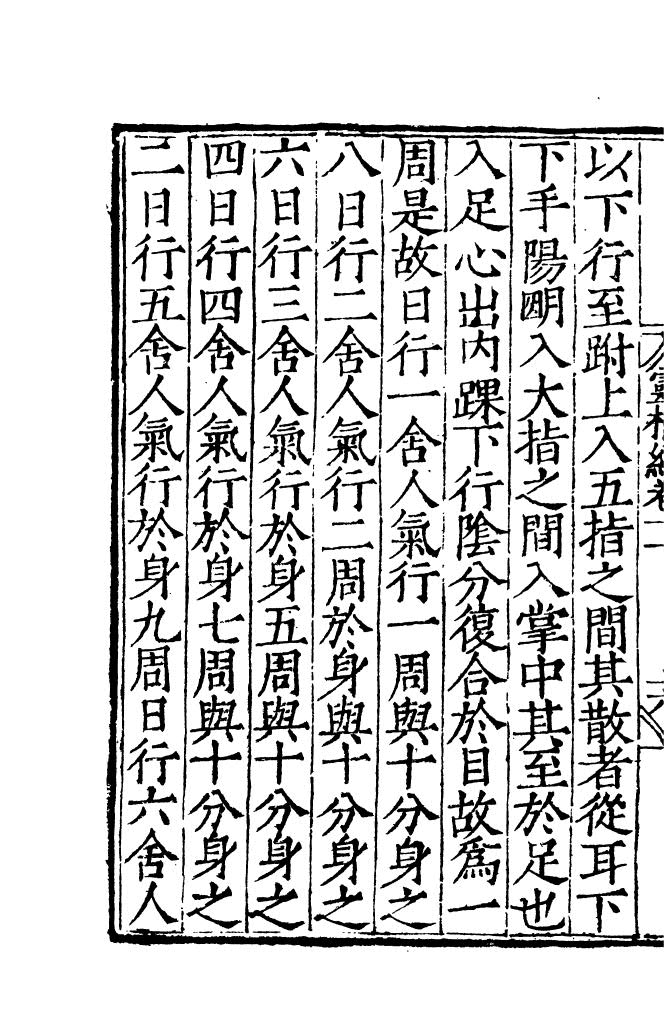 靈樞經卷十 六
以下行至跗上入五指之間其散者從耳下
下手陽明入大指之間入掌中其至於足也
入足心出内踝下行陰分復合於目故爲一
周是故日行一舍人氣行一周與十分身之
八日行二舍人氣行二周於身與十分身之
六日行三舍人氣行於身五周與十分身之
四日行四舍人氣行於身七周與十分身之
二日行五舍人氣行於身九周日行六舍人